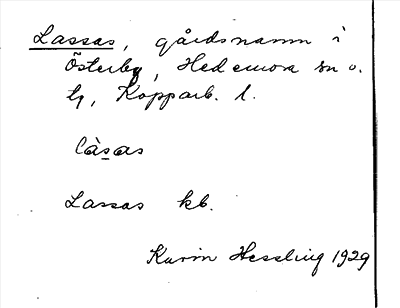 Lassas, gårdsnamn i
Österby, Hedemora sn o.
tg, Kopparb. l.
làsas
Lassas kb.
Karin Hessling 1929